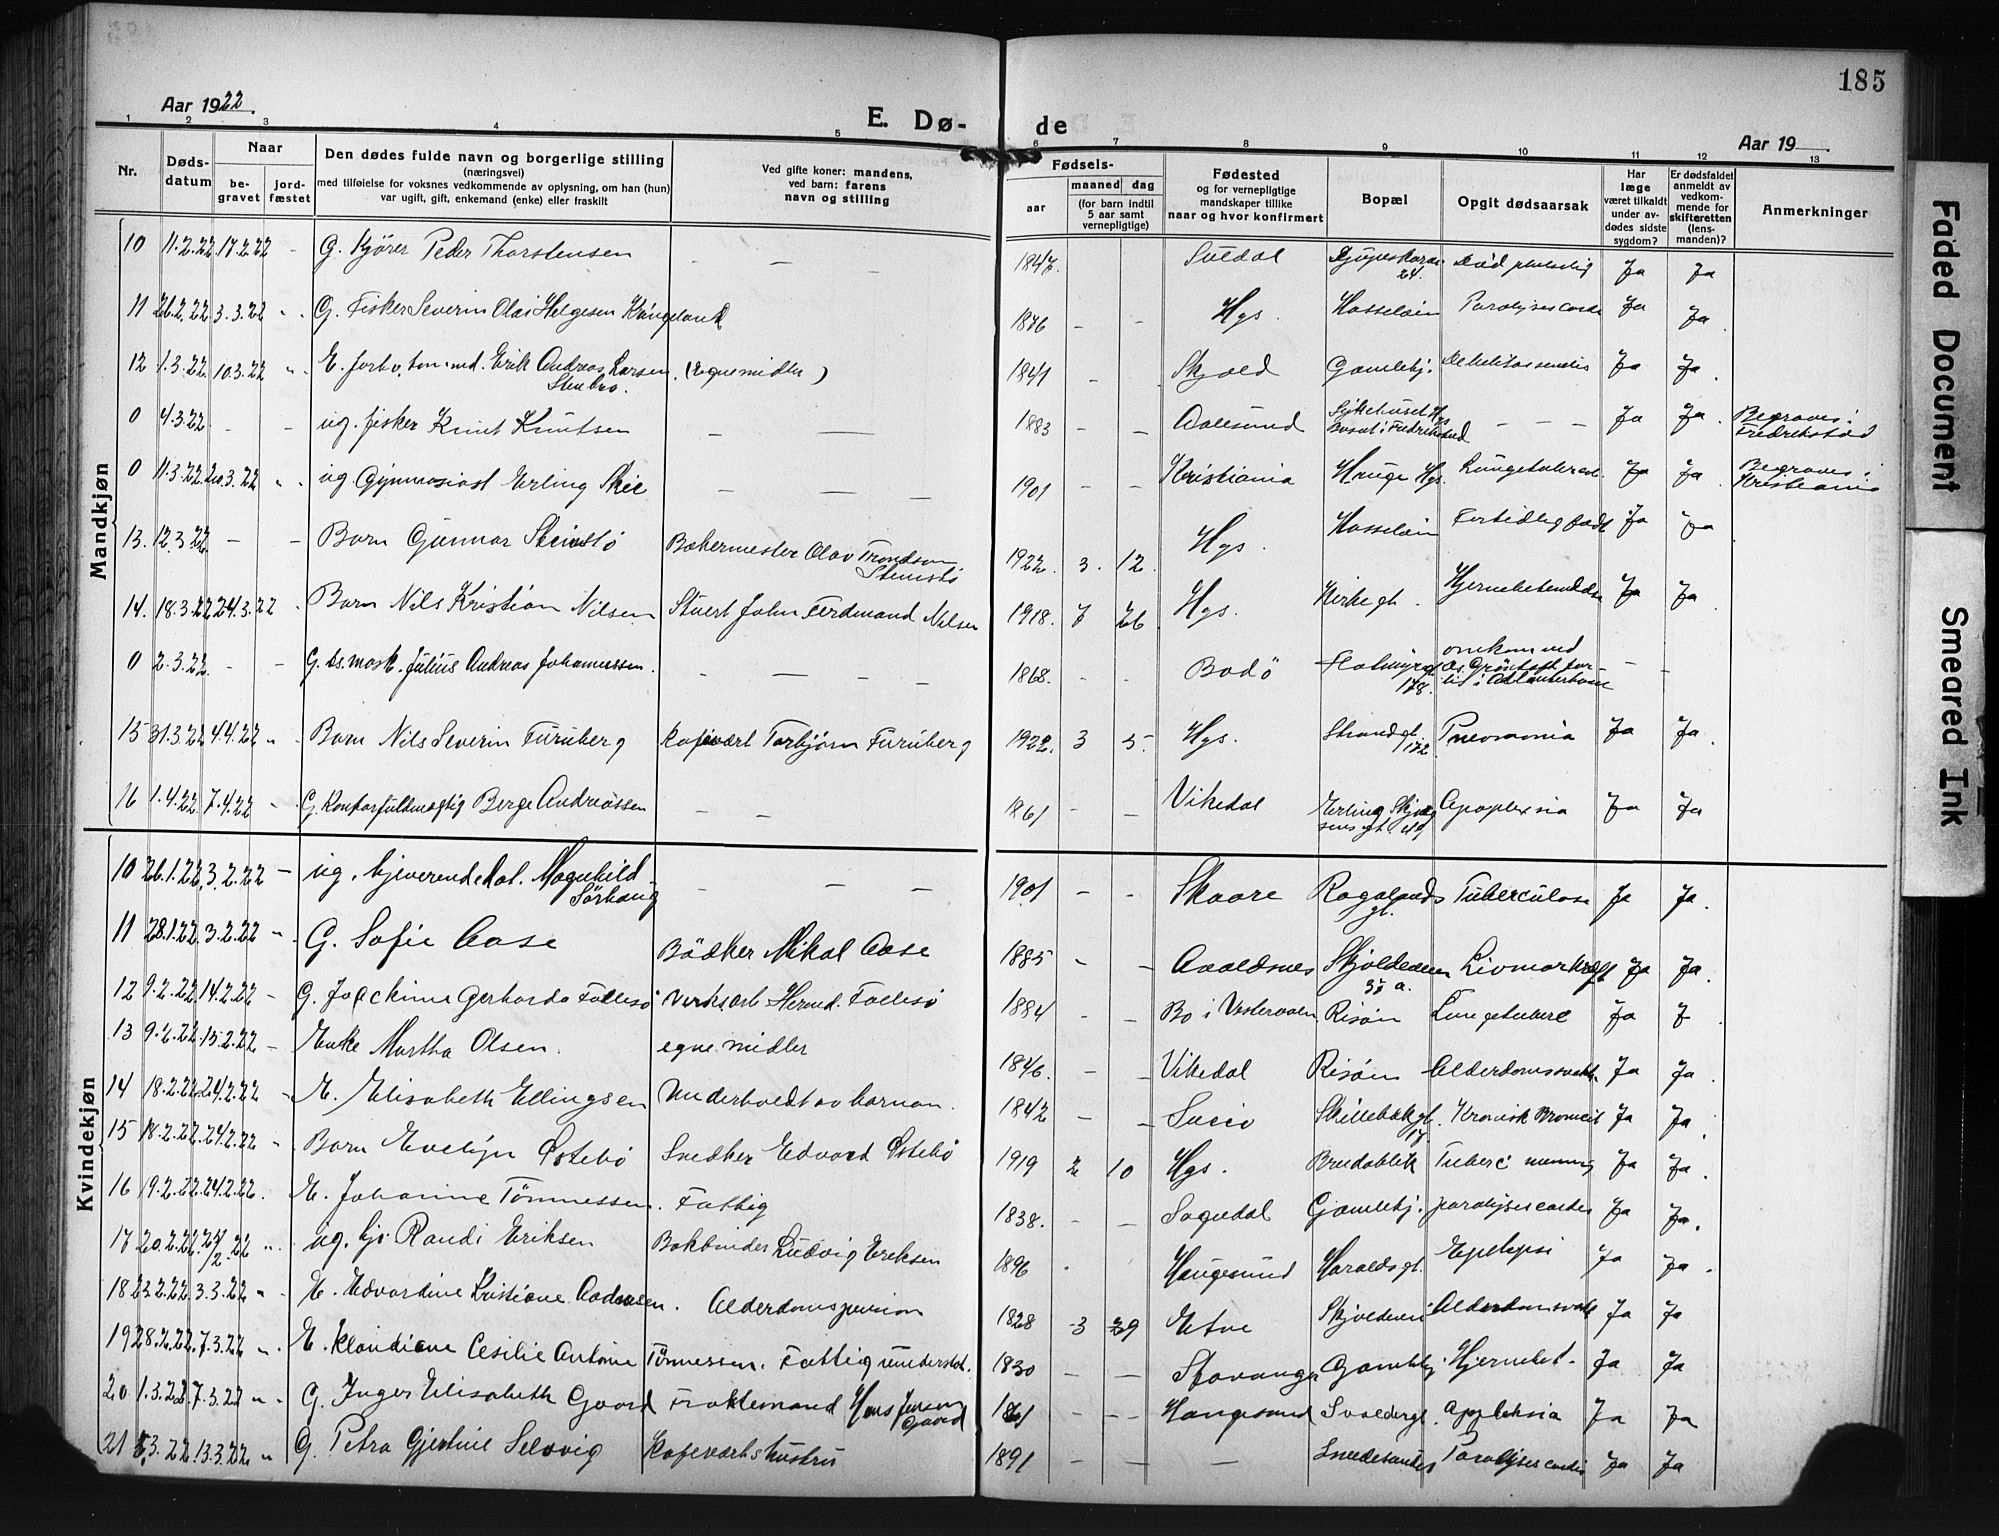 185
Aar 1922.
E. Dø- de
Aar 19
1 2 3 4 5 6 7 8 9 10 11 12 13
Nr.
Døds-
datum
Naar
be-
gravet
jord-
fæstet
Den dødes fulde navn og borgerlige stilling
(næringsvei)
med tilføielse for voksnes vedkommende av oplysning, om han (hun)
var ugift, gift, enkemand (enke) eller fraskilt
Ved gifte koner: mandens,
ved barn: farens
navn og stilling
Fødsels-
aar
maaned dag
(for barn indtil
5 aar samt
vernepligtige)
Fødested
og for vernepligtige
mandskaper tillike
naar og hvor konfirmert
Bopæl
Opgit dødsaarsak
Har
læge
været tilkaldt
under av-
dødes sidste
sygdom?
Er dødsfaldet
anmeldt av
vedkom-
mende for
skifteretten
(lens-
manden)?
Anmerkninger
Mandkjøn
10 11.2.22 17.2.22 - G. Kjører Peder Thorstensen - - - 1847. Suldal 24. Ja Ja
11 26.2.22 3.3.22 " G. Fisker Severin Olai Helgesen Kringeland 1876 - - Hgs. Hasseløen Ja Ja
12 1.3.22 10.3.22 " E. Erik Andreas Larsen (egne midler) 1841 - - Skjold Gamlehj. Ja Ja.
Stenbro.
0 4.3.22 - - ug. fisker Knut Knutsen - — 1883 - - Aalesund Sykehuset Hgs - - - Ja Ja. Begraves i
Bosat i Fredrikstad Fredrikstad
0 11.3.22 20.3.22 " ug Gymnasiast Erling Skie - - - 1901 - - Kristiania Hauge Hgs. Lungetubercul. Ja Ja. Begraves i
Kristiania
13. 12.3.22 - - Barn Gunnar Stensø Bakermester Olav Trondsen 1922. 3. 12. Hgs. Hasseløen Fortidlig født Ja Ja
Stensø
14. 18.3.22 24.3.22 Barn Nils Kristian Nilsen Stuert John Ferdinand Nilsen 1918. 7 26 Hgs. Kirkegt. Ja Ja.
0 2.3.22 - - G. Julius Andreas Johannessen. - - - - 1868. - - Bodø 178. omkom ved - -
15 31.3.22 4.4.22 " Barn Nils Severin Furuberg Kafevært Torbjørn Furuberg 1922. 3 5. Hgs. Strandgt. Pneomonia Ja Ja.
172
16 1.4.22 7.4.22 " G. Kontorfuldmægtig Berge Andreassen - - 1861 - - Vikedal Erling Skjalg Apoplexia Ja Ja
sensgt. 49
Kvindekjøn
10 26.1.22. 3.2.22 - ug. hjeverende dat. Magnhild - - - 1901 - - Skaare Rogalands Tuberculose Ja Ja.
Sørhaug gt.
11 28.1.22. 3.2.22 " G. Sofie Aase Bødker Mikal Aase 1885 - - Avaldsnes Skjoldeveien Ja Ja.
37 a.
12 9.2.22 14.2.22 - G. Joachime Gerharda Follesø Follesø 1884 - - Bo i Vesteraalen Risøen Lungetuberc Ja J
13 9.2.22. 15.2.22 - Enke Martha Olsen. egne midler 1846. - - Vikedal Risøen Alderdomssvakh. Ja Ja.
14 18.2.22. 24.2.22 " E. Elisabeth Ellingsen Underholdt av barnan. 1842 - - Skillebækgt. Kronisk Bronkit Ja Ja.
17
15 18.2.22. 24.2.22 " Barn Evelyn Østebø Snedker Edvard Østebø 1919 2 10 Hgs. Breidablik Ja Ja.
16 19.2.22. 24.2.22. E. Johanne Tønnessen. Fattig 1838. - - Sogndal Gamlehj. paralyses cordis Ja Ja.
17 20.2.22. 24/2.22 " ug. hj. Randi Eriksen Bokbinder Ludvig Eriksen 1896 Haugesund Haraldsgt. Epelepsi Ja Ja.
18 23.2.22. 3.3.22 " E. Edvardine Kristiane Andersen. Alderdomspension 1828 3 29 Etne Skjoldevei Alderdomsvakh Ja Ja
19 28.2.22. 7.3.22 " E. Klandiane Cesilie Antonie Tønnessen. Fattig understøt. 1830 - - Stavanger Gamlehj. Ja Ja
20 1.3.22 7.3.22 " G. Inger Elisabeth Gaard Hans Jensen 1861 - - Haugesund Svoldergt. Appleksia Ja Ja
Gaard
21 5.3.22 13.3.22 " G. Petra Gjertine Selvvig Kafeværts hustru 1891 - - - Paralyses cordis Ja Ja
Faded Document
Smeared Ink